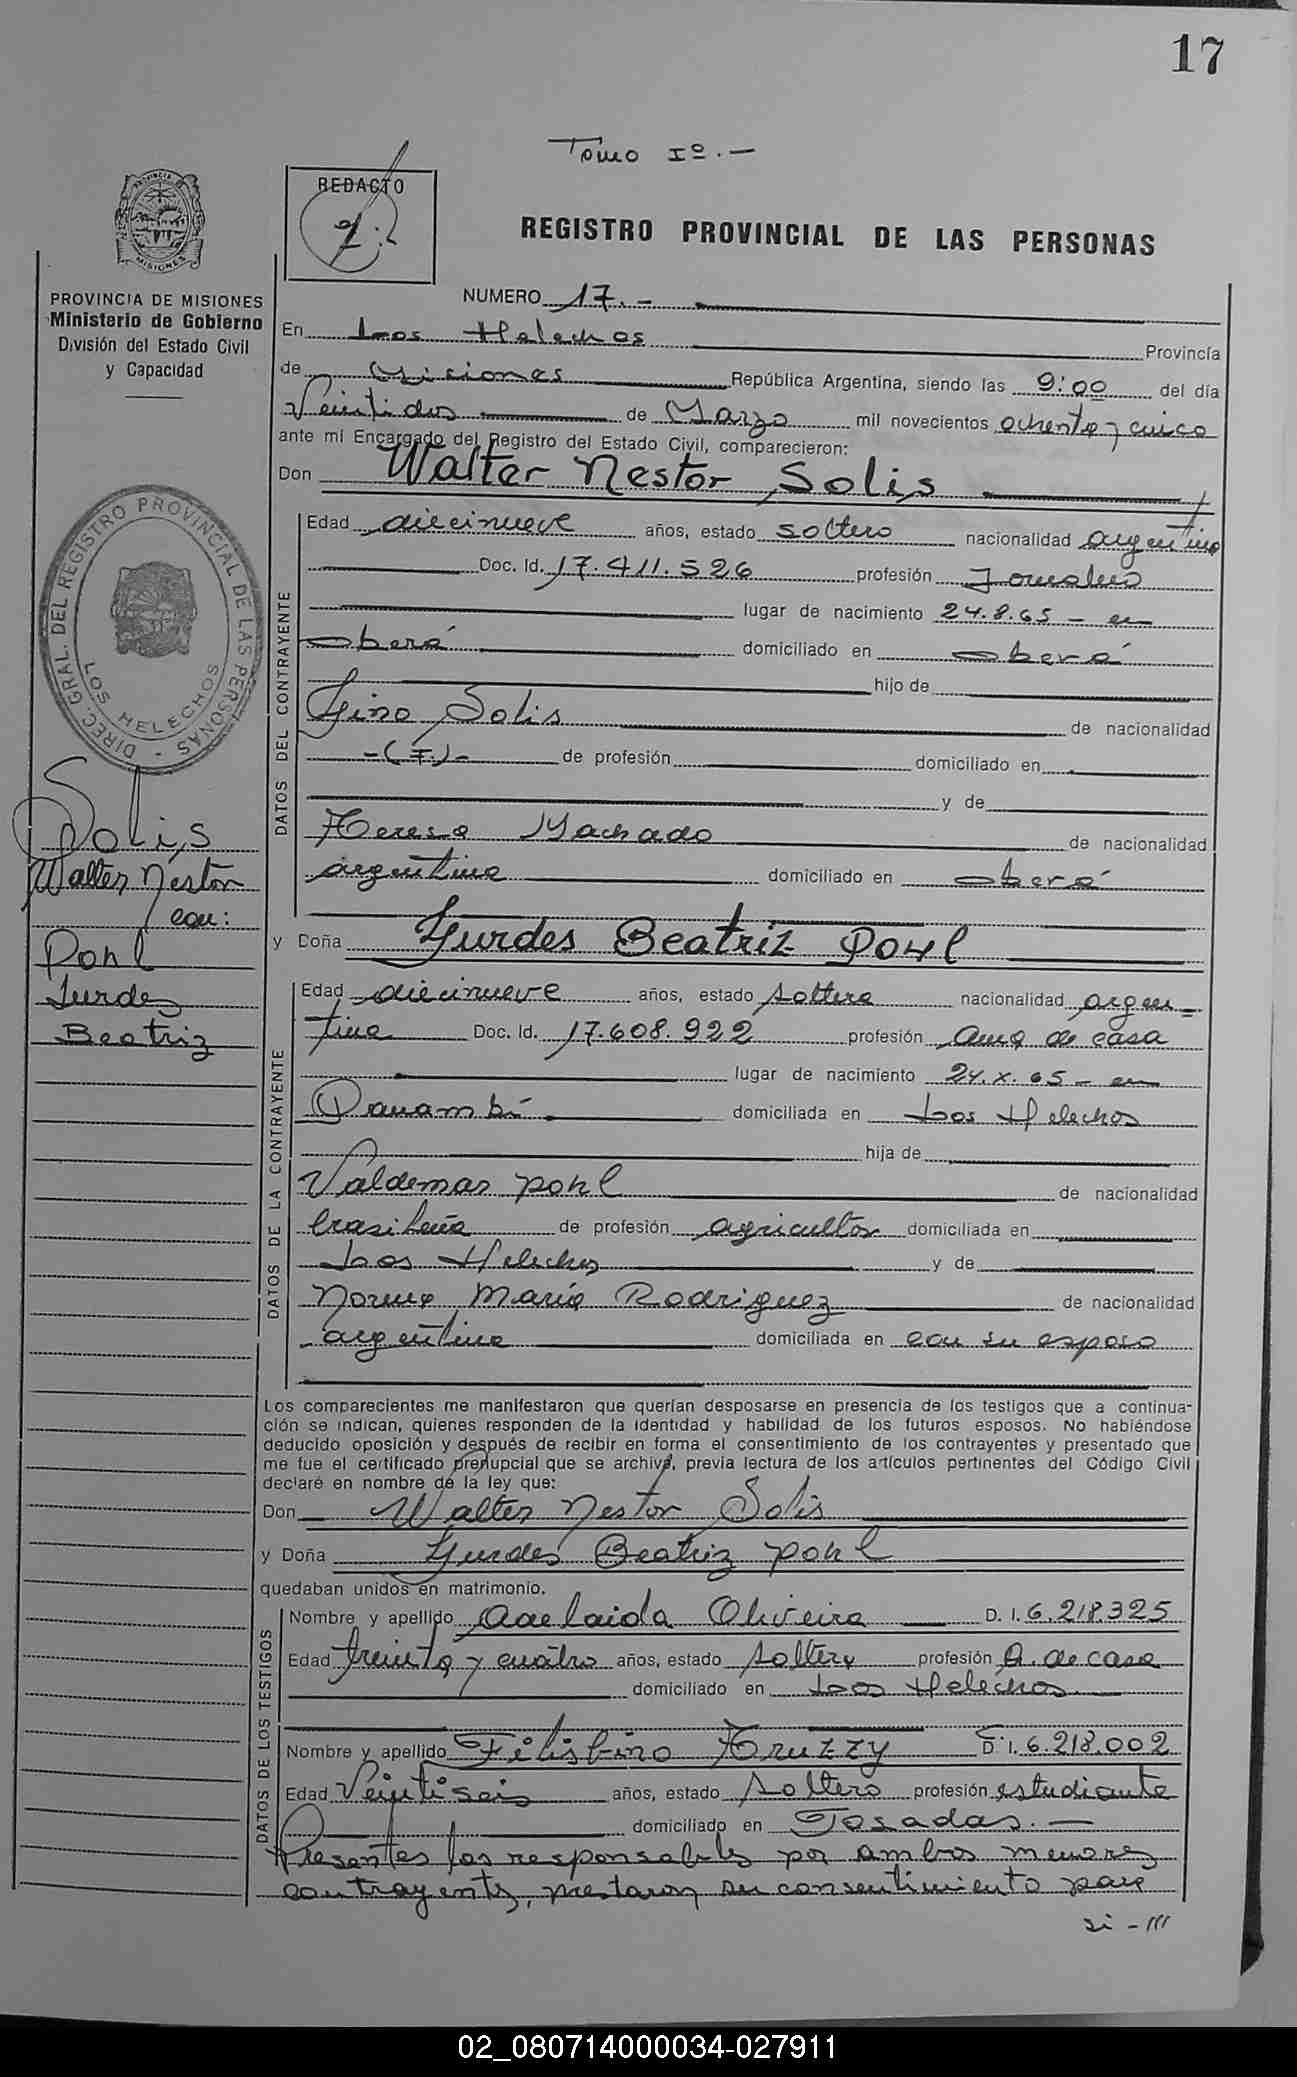 17
Tomo Iº.-
REDACTO
REGISTRO PROVINCIAL DE LAS PERSONAS
PROVINCIA DE MISIONES
Ministerio de Gobierno
División del Estado Civil
y Capacidad
NUMERO 17.-
En Los Helechos Provincia
de Misiones República Argentina, siendo las 9:00 del día
Veintidos de Marzo mil novecientos ochenta y cinco
ante mí Encargado del Registro del Estado Civil, comparecieron:
Don Walter Nestor Solis
DIREC. GRAL. DEL REGISTRO PROVINCIAL DE LAS PERSONAS -
LOS HELECHOS
DATOS DEL CONTRAYENTE
Edad diecinueve años, estado soltero nacionalidad argentino
Doc. Id. 17.411.526 profesión Jornalero
lugar de nacimiento 24.8.65 - en
Oberá domiciliado en Oberá
hijo de
Lino Solis de nacionalidad
-(F.)- de profesión domiciliado en
y de
Teresa Machado de nacionalidad
argentina domiciliado en Oberá
Solis
Walter Nestor
con:
Pohl
Lurdes
Beatriz
y Doña Lurdes Beatriz Pohl
DATOS DE LA CONTRAYENTE
Edad diecinueve años, estado soltera nacionalidad argen-
tina Doc. Id. 17.608.922 profesión ama de casa
lugar de nacimiento 24.X.65 - en
Panambí domiciliada en Los Helechos
hija de
Valdemar Pohl de nacionalidad
brasileña de profesión agricultor domiciliada en
Los Helechos y de
Norma María Rodriguez de nacionalidad
argentina domiciliada en con su esposo
Los comparecientes me manifestaron que querían desposarse en presencia de los testigos que a continua-
ción se indican, quienes responden de la identidad y habilidad de los futuros esposos. No habiéndose
deducido oposición y después de recibir en forma el consentimiento de los contrayentes y presentado que
me fue el certificado prenupcial que se archiva, previa lectura de los artículos pertinentes del Código Civil
declaré en nombre de la ley que:
Don Walter Nestor Solis
y Doña Lurdes Beatriz Pohl
quedaban unidos en matrimonio.
DATOS DE LOS TESTIGOS
Nombre y apellido Adelaida Oliveira D. I. 6.218325
Edad treinta y cuatro años, estado soltera profesión A. de casa
domiciliado en Los Helechos
Nombre y apellido Filisbino Truzzy D. I. 6.218.002
Edad Veintiseis años, estado soltero profesión estudiante
domiciliado en Posadas.-
Presentes los responsables por ambos menores
contrayentes, prestaron su consentimiento para
si-///
02_080714000034-027911